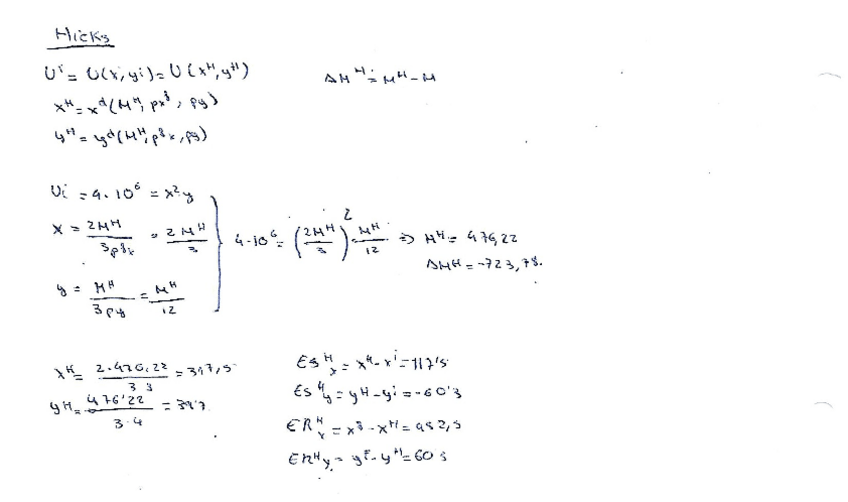 Hicks
Uⁱ = U(xⁱ, yⁱ) = U(x^H, y^H)
ΔM^H = M^H - M
x^H = x^d(M^H, px^f, py)
y^H = y^d(M^H, p^f x, py)
Ui = 4·10⁶ = x²y
x = 2M^H / 3p^f x = 2M^H / 3
y = M^H / 3py = M^H / 12
4·10⁶ = (2M^H / 3)² · M^H / 12 ⇒ M^H = 476,22
ΔM^H = -723,78.
x^H = 2·476,22 / 3 = 317,5
y^H = 476'22 / 3·4 = 39'7
ES^H x = x^H - xⁱ = 117'5
ES^H y = y^H - yⁱ = -60'3
ER^H x = x^f - x^H = 482,5
ER^H y = y^f - y^H = 60'3